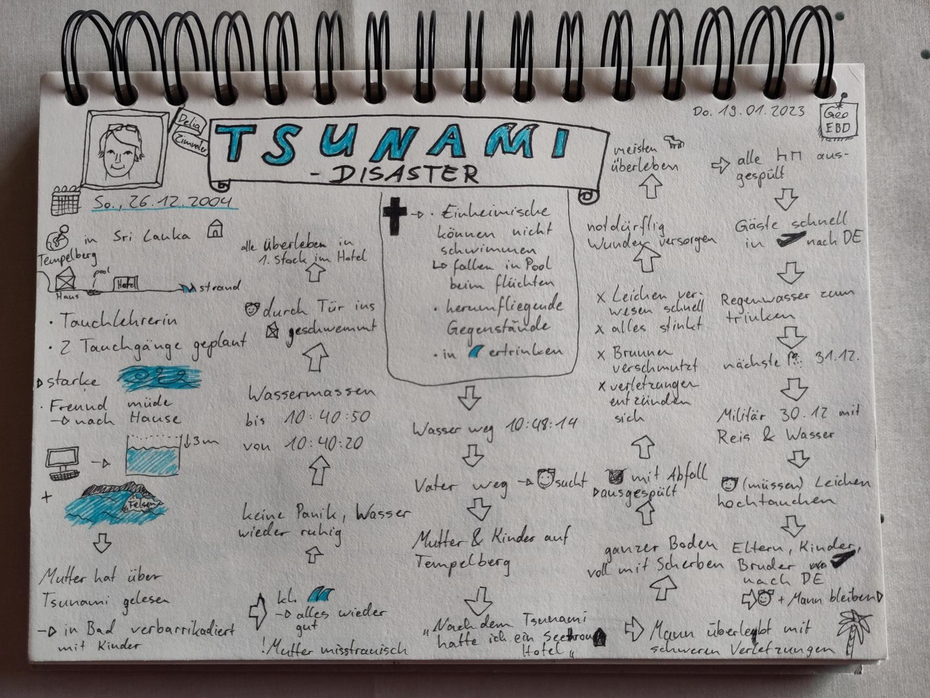 Do. 19.01.2023
Geo
EBD
Delia
TSUNAMI
- DISASTER
So., 26.12.2004
in Sri Lanka
Tempelberg
pool
Haus
Hotel
strand
· Tauchlehrerin
· 2 Tauchgänge geplant
starke
· Freund müde
→ nach Hause
3m
+
Felsen
Mutter hat über
Tsunami gelesen
→ in Bad verbarrikadiert
mit Kinder
kl.
→ alles wieder
gut
! Mutter misstrauisch
keine Panik, Wasser
wieder ruhig
Wassermassen
bis 10:40:50
von 10:40:20
durch Tür ins
geschwemmt
alle überleben in
1. Stock im Hotel
· Einheimische
können nicht
schwimmen
↳ fallen in Pool
beim flüchten
· herumfliegende
Gegenstände
· in ertrinken
Wasser weg 10:48:14
Vater weg → sucht
Mutter & Kinder auf
Tempelberg
"Nach dem Tsunami
hatte ich ein
Hotel"
Mann überlebt mit
schweren Verletzungen
ganzer Boden
voll mit Scherben
mit Abfall
ausgespült
x Leichen ver-
wesen schnell
x alles stinkt
x Brunnen
verschmutzt
x verletzungen
entzünden
sich
notdürftig
Wunden versorgen
meisten
überleben
alle aus-
gespült
Gäste schnell
in nach DE
Regenwasser zum
trinken
nächste 31.12.
Militär 30.12 mit
Reis & Wasser
(müssen) Leichen
hochtauchen
Eltern, Kinder,
Bruder
nach DE
+ Mann bleiben